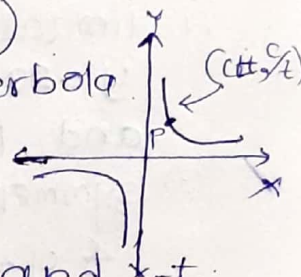 Y
erbola
(ct, c/t)
P
X
and x-t